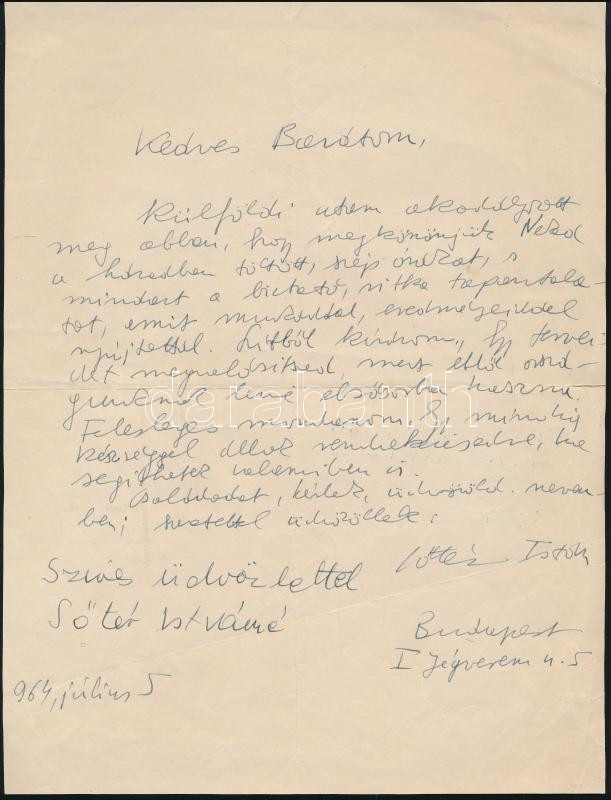 Kedves Barátom,
Külföldi utam akadályozott
meg abban, hogy megköszönjük Neked
a házadban töltött, szép órákat, s
mindazt a biztató, ritka tapasztala-
tot, amit munkáddal, eredményeiddel
nyújtottál. Szívből kívánom, hogy tervei-
det megvalósítsad, mert ebből orszá-
gunknak lenne elsősorban haszna.
Felesleges mondanom, hogy mindig
készséggel állok rendelkezésedre, ha
segíthetek valamiben is.
Családodat, kérlek, üdvözöld neven-
ben; szeretettel üdvözöllek:
Sőtér István
Szíves üdvözlettel
Sőtér Istváné
Budapest
I Jégverem u. 5
964, július 5
darabanth